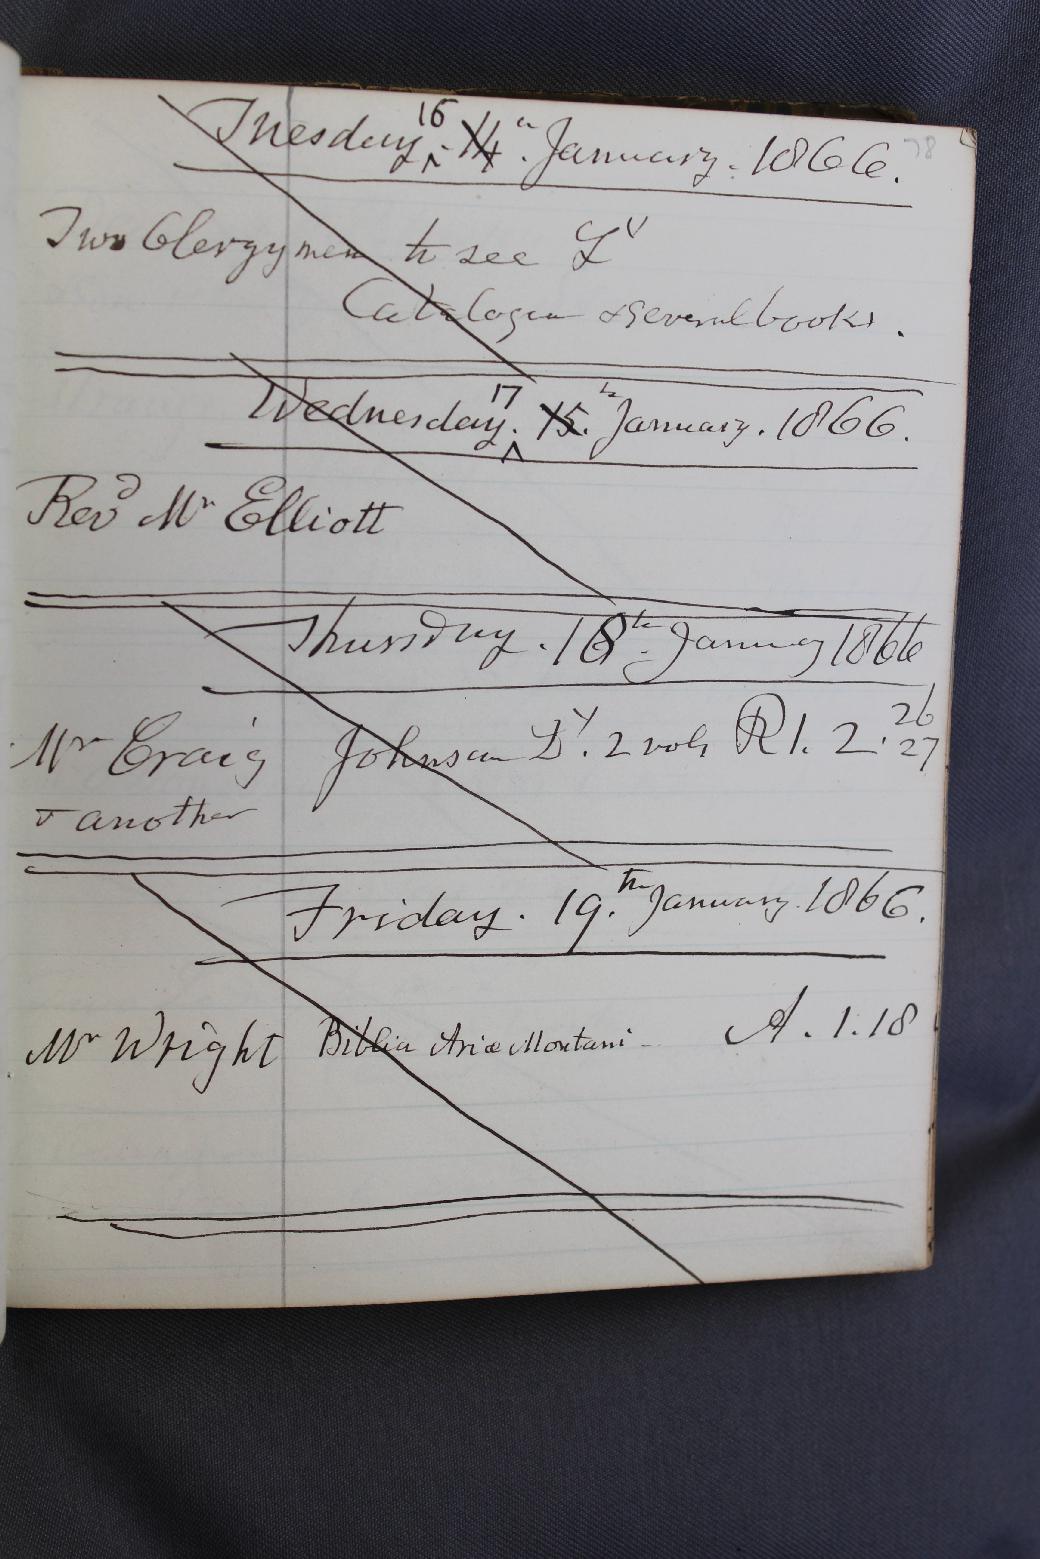 78
Tuesday 16 14th January. 1866.
Two Clergymen to see Ly
Catalogue & several books.
Wednesday. 17 15th January. 1866.
Revd Mr Elliott
Thursday. 18th January 1866
Mr Craig Johnson Dy. 2 vols R 1. 2. 26 27
& another
Friday. 19.th January. 1866.
Mr Wright Biblia Ariæ Montani A. 1. 18